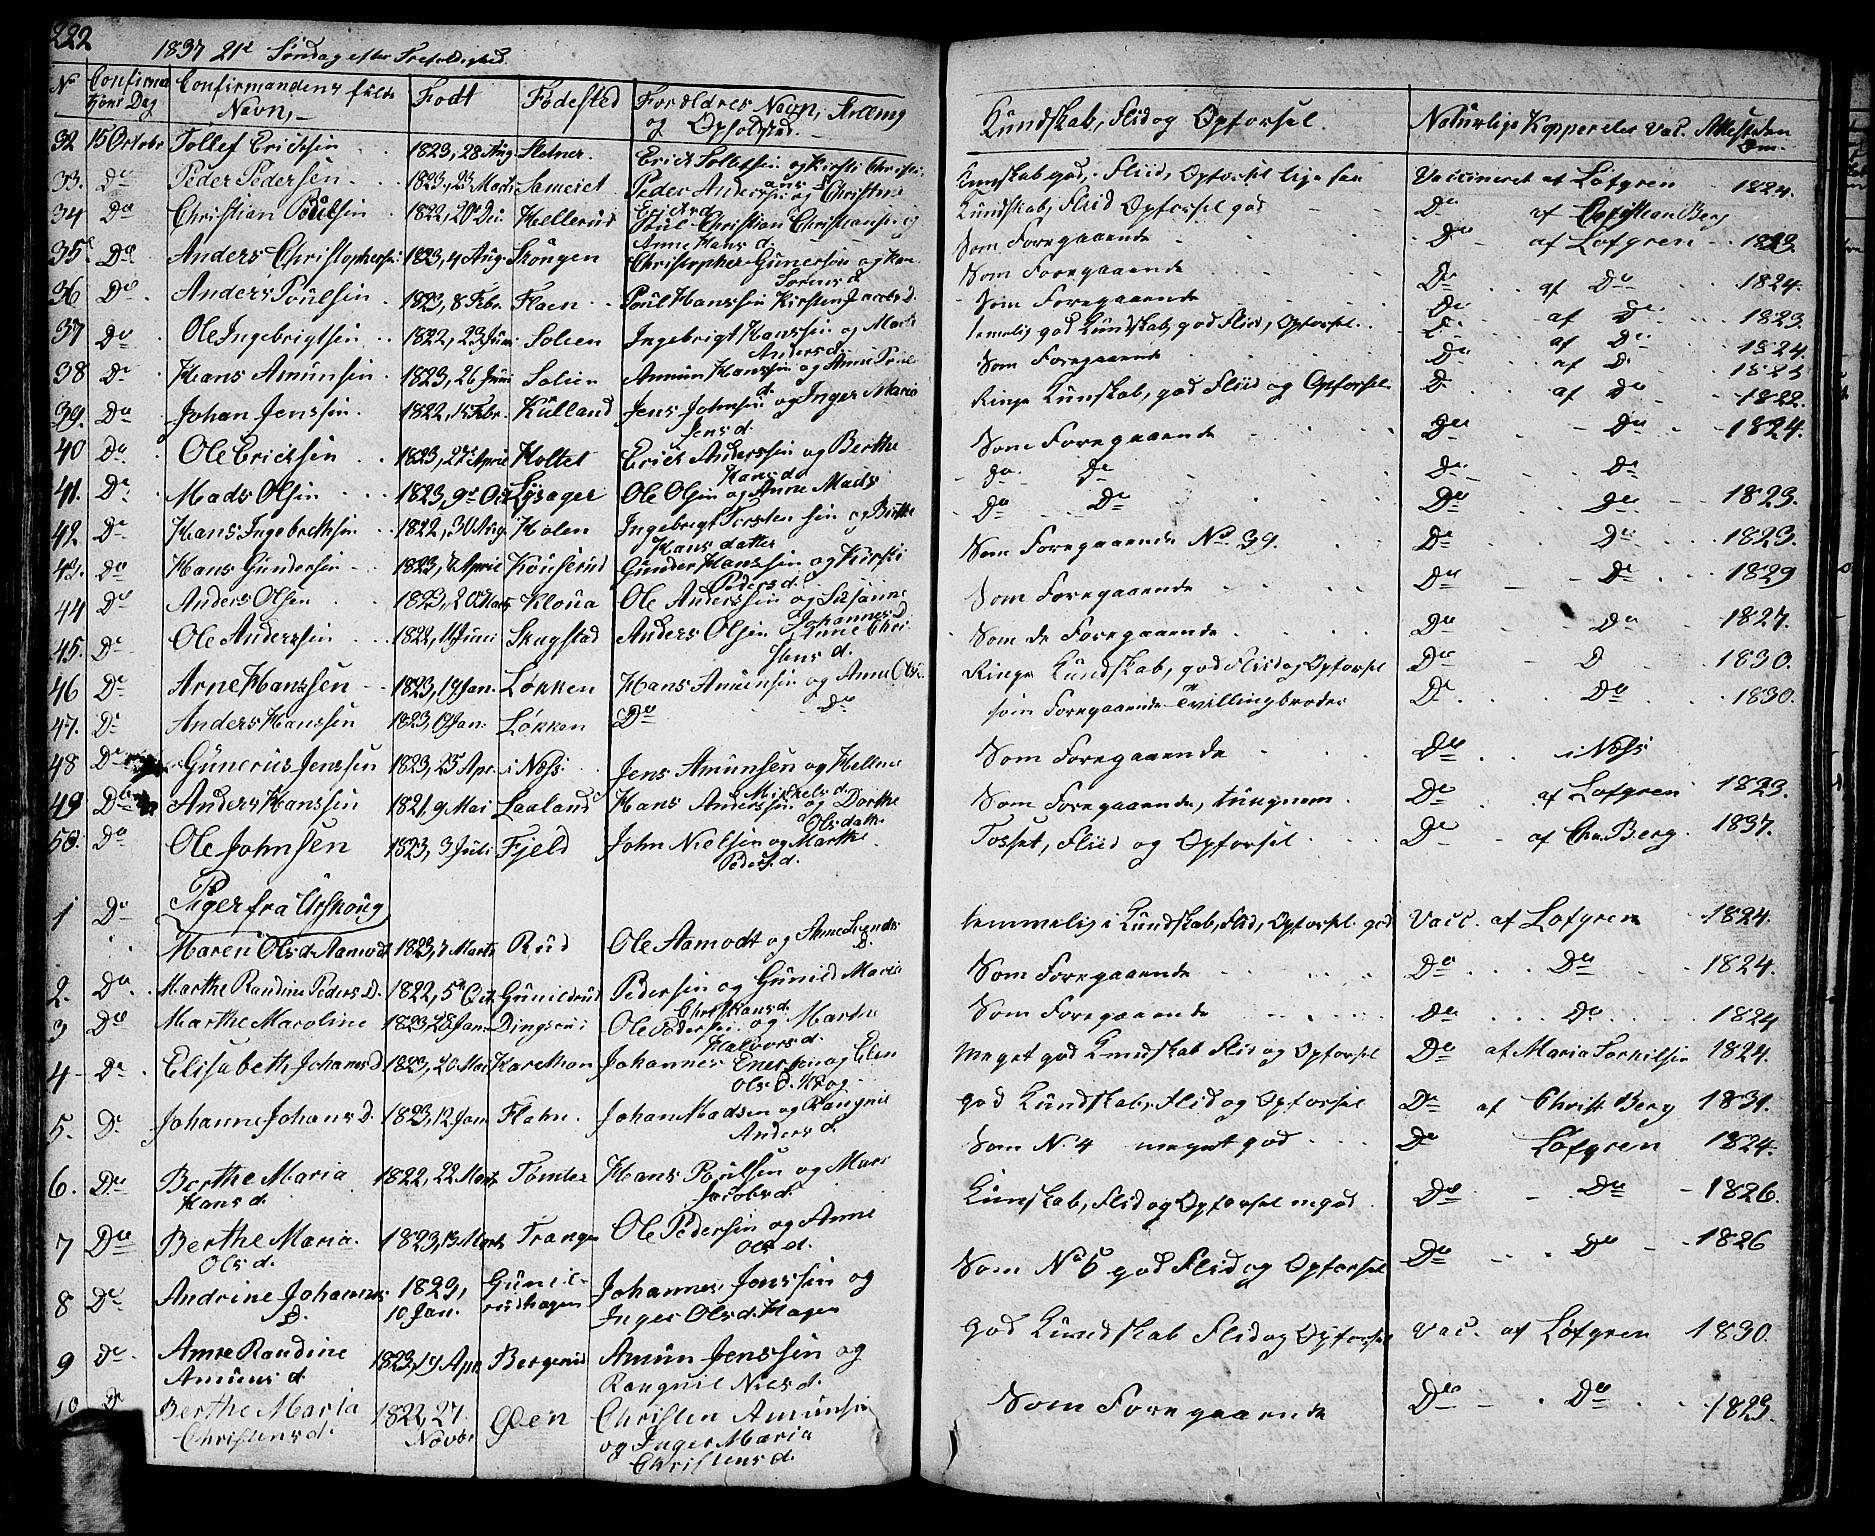 222
1837 21de Søndag efter Trefoldighed.
No Confirmationsdag Confirmandens fulde Navn, Født Fødested Forældres Navn, Stilling og Opholdsted. Kundskab, Flid og Opførsel. Naturlige Kopper eller Vac. Attestens Dm.
32 15 Octobr Tollef Ericksen 1823, 28 Aug
33. Do Peder Pedersen 1823, 23 Marts Sameiet Peder Andersen og Christine Kundskab god, Fliid, Opførsel ligesaa Vaccineret af Løfgren 1824.
34 Do Christian Poulsen 1822, 20 De. Hellerud Poul Christian Christiansen og Anne Hans d. Kundskab, Fliid Opførsel god Do af Christian Berg
35 Do Anders Christophersen 1823, 4 Aug Skougen Christopher Gunersen og Sørens d. Som Foregaaende Do af Løfgren 1823
36 Do Anders Poulsen 1823, 8 Febr. Floen Poul Hanssen Kirsten Jacobs D. Som Foregaaende Do af Do 1824.
37 Do Ole Ingebrigtsen 1822, 23 Juni Solien Ingebrigt Hanssen og Marte Anders d. temelig god Kundskab, god Fliid, Opførsel. Do af Do 1823
38 Do Hans Amunsen 1823, 26 Juni Solien Amun Hanssen og Anne Poul d. Som Foregaaende Do af Do 1824.
39. Do Johan Jenssen 1822, Febr. Kulland Jens Johnsen og Inger Maria Jens d. Ringe Kundskab, god Fliid og Opførsel Do af Do 1822.
40 Do Ole Ericksen 1823, 27 April Holtet Erick Anderssen og Berthe Hans d. Som Foregaaende Do Do 1824.
41. Do Mads Olsen 1823, 9de Oct Lysager Ole Olsen og Anne Mads Do Do Do Do
42 Do Hans Ingebrethsen 1822, 30 Aug Holen Ingebrigt Torstensen og Birthe Hans datter Do Do Do Do 1823.
43. Do Hans Gundersen 1823, April Kouserud Gunder Hanssen og Kirsti Peders d. Som Foregaaende No 39. Do Do 1823.
44 Do Anders Olsen 1823, 20 Marts Kloua Ole Anderssen og Susanne Johannes D. Som Foregaaende Do Do 1829
45. Do Ole Anderssen 1822, Juni Skagstad Anders Olsen Anne Chri Jens d. Som de Foregaaende Do Do 1827.
46 Do Arne Hanssen 1823, 19 Jan. Løkken Hans Amunsen og Anne Ols Ringe Kundskab, god Fliid og Opførsel Do D 1830.
47. Do Anders Hanssen 1823, 19 Jan. Løkken Do Do som Foregaaende Tvillingbroder Do Do 1830.
48 Do Gunerius Jenssen 1823, 25 Apr. i Næss. Jens Amunsen og Hellene Mikkels d. Som Foregaaende Do i Næss
49 Do Anders Hanssen 1821, 9 Mai Laaland Hans Anderssen og Dorthe Ols datte Som Foregaaende, tungnem Do af Løfgren 1823.
50. Do Ole Johnsen 1823, 3 Juli Fjeld John Nielsen og Marthe Peders d. Tosset, Fliid og Opførsel Do af Chr. Berg. 1837.
Piger fra Urskoug
1 Do Maren Ols d. Aamodt 1823, 7 Marts Rud Ole Aamodt og temmelig i Kundskab, Flid, Opførsel god Vacc. af Løfgren 1824.
2. Do Marthe Randine Peders D. 1822, 5te Oct. Gunildrud Pedersen og Gunild Marie Christians d. Som Foregaaende Do Do 1824.
3 Do Marthe Maroline 1823, 28 Jan. Dingsrud Ole Pedersen og Marthe Halvors d. Som Foregaaende Do Do 1824
4 Do Elisabeth Johannes D. 1823, 20 Mai Johannes Enersen og Elen Ols D. Krog Meget god Kundskab Flid og Opførsel Do af Maria Torkilsen 1824.
5. Do Johanne Johans D. 1823, 12 Jan Flahn. Johan Madsen og Rangnil Anders d. god Kundskab, Flid og Opførsel Do af Christ. Berg 1831.
6. Do Berthe Maria Hans d. 1822, 22 Marts Tømter Hans Poulsen og Mari Jacobs d. Som N. 4 meget god Do Løfgren 1824.
7 Do Berthe Maria Ols d. 1823, 13 Marts Trangen Ole Pedersen og Anne Ols d. Kundskab, Flid og Opførsel mgod Do Do 1826.
8 Do Andrine Johannes D. 1823, 10 Jan. Gunilrudhagen Johannes Jonssen og Inger Ols d. Hagen Som No 6 god Flid og Opførsel Do Do 1826
9 Do Anne Randine Amuns d. 1823, 19 Apr. Bergerud Amun Jenssen og Rangnil Niels d. God Kundskab Flid og Opførsel Vac. af Løfgren 1830.
10 Do Berthe Maria Christens d. 1822, 27. Novbr Øien Christen Amunsen og Inger Maria Christens d. Som Foregaaende Do Do 1823.